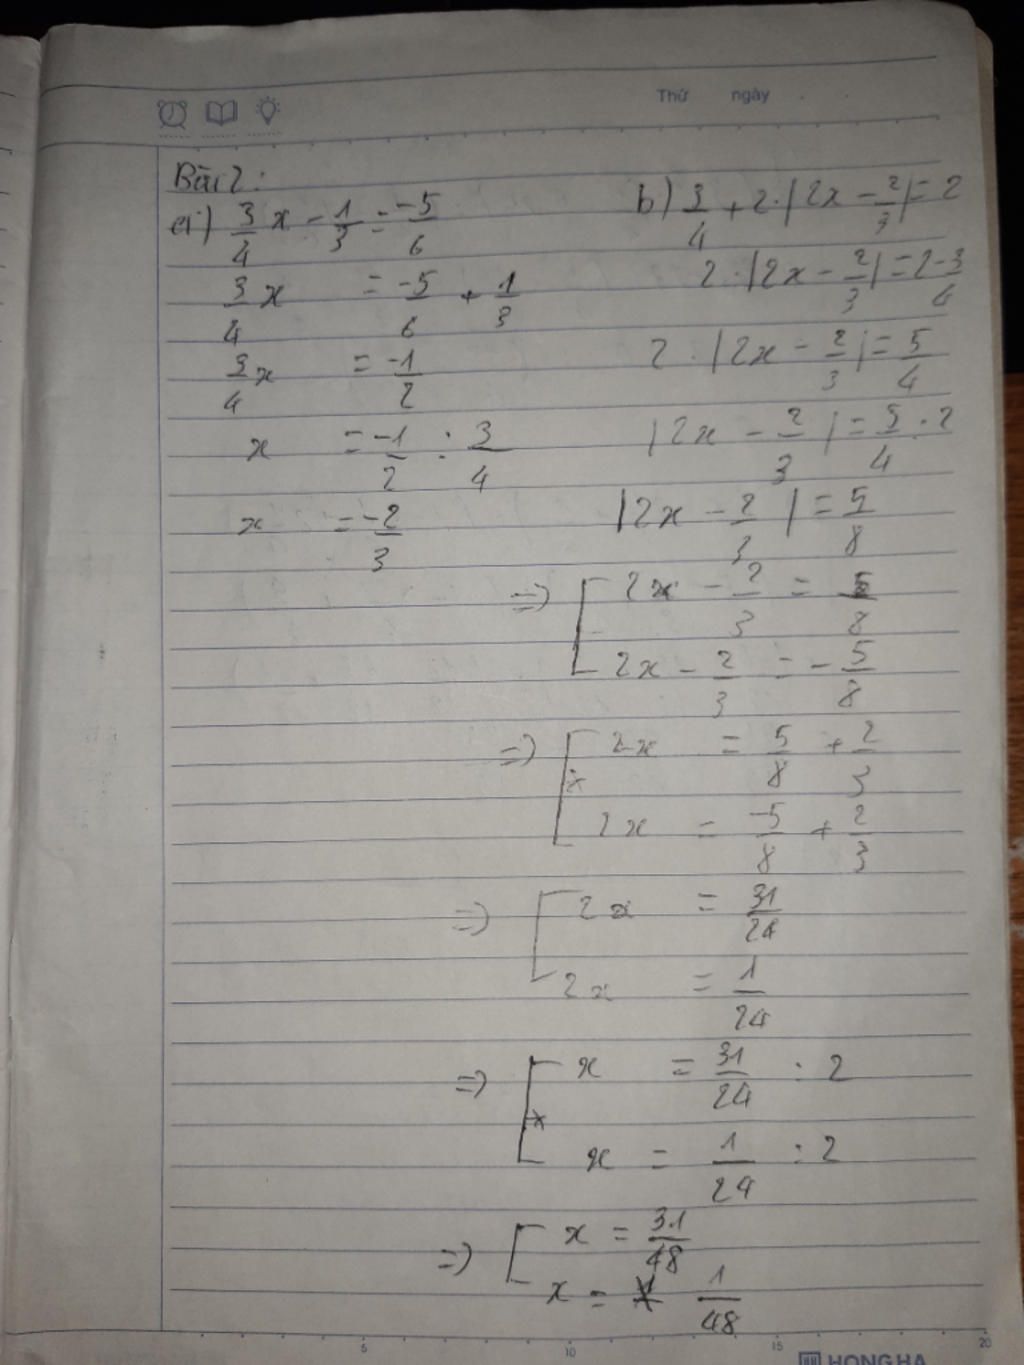 Thứ ngày
Bài 2:
a) 3/4 x - 1/3 = -5/6
3/4 x = -5/6 + 1/3
3/4 x = -1/2
x = -1/2 : 3/4
x = -2/3
b) 3/4 + 2.|2x - 2/3| = 2
2.|2x - 2/3| = 2 - 3/4
2.|2x - 2/3| = 5/4
|2x - 2/3| = 5/4 . 2
|2x - 2/3| = 5/8
=> [ 2x - 2/3 = 5/8
2x - 2/3 = - 5/8
=> [ 2x = 5/8 + 2/3
2x = -5/8 + 2/3
=> [ 2x = 31/24
2x = 1/24
=> [ x = 31/24 : 2
x = 1/24 : 2
=> [ x = 31/48
x = 1/48
5 10 15 20
HONG HA